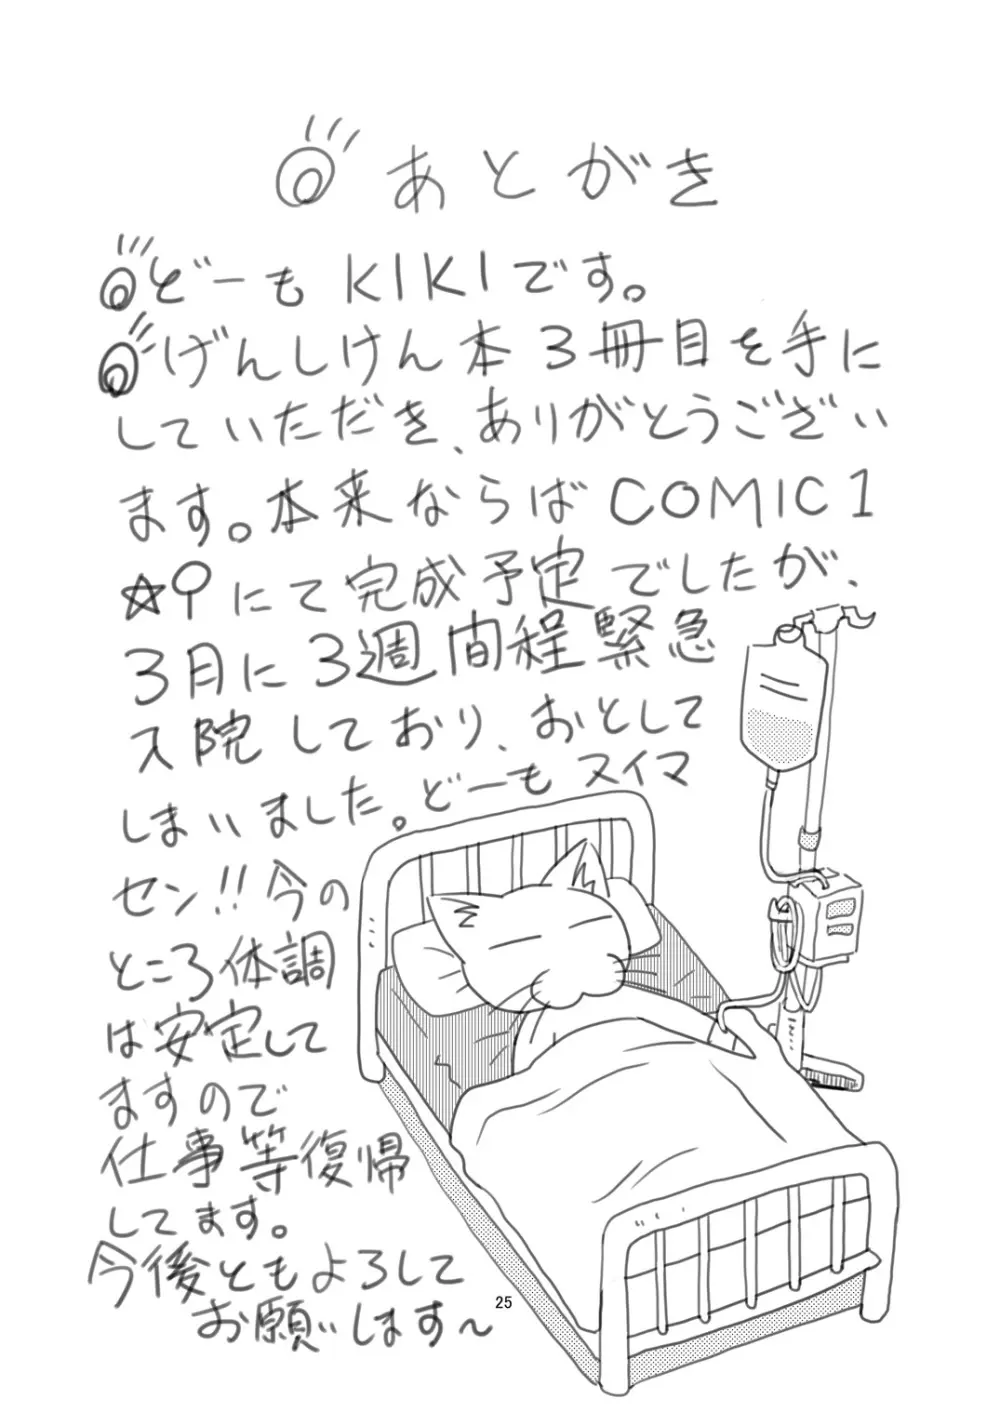 あとがき
どーもKIKIです。
げんしけん本3冊目を手に
していただき、ありがとうござい
ます。本来ならばCOMIC1
☆9にて完成予定でしたが、
3月に3週間程緊急
入院しており、おとして
しまいました。どーもスイマ
セン!!今の
ところ体調
は安定して
ますので
仕事等復帰
してます。
今後ともよろして
お願いします〜
25